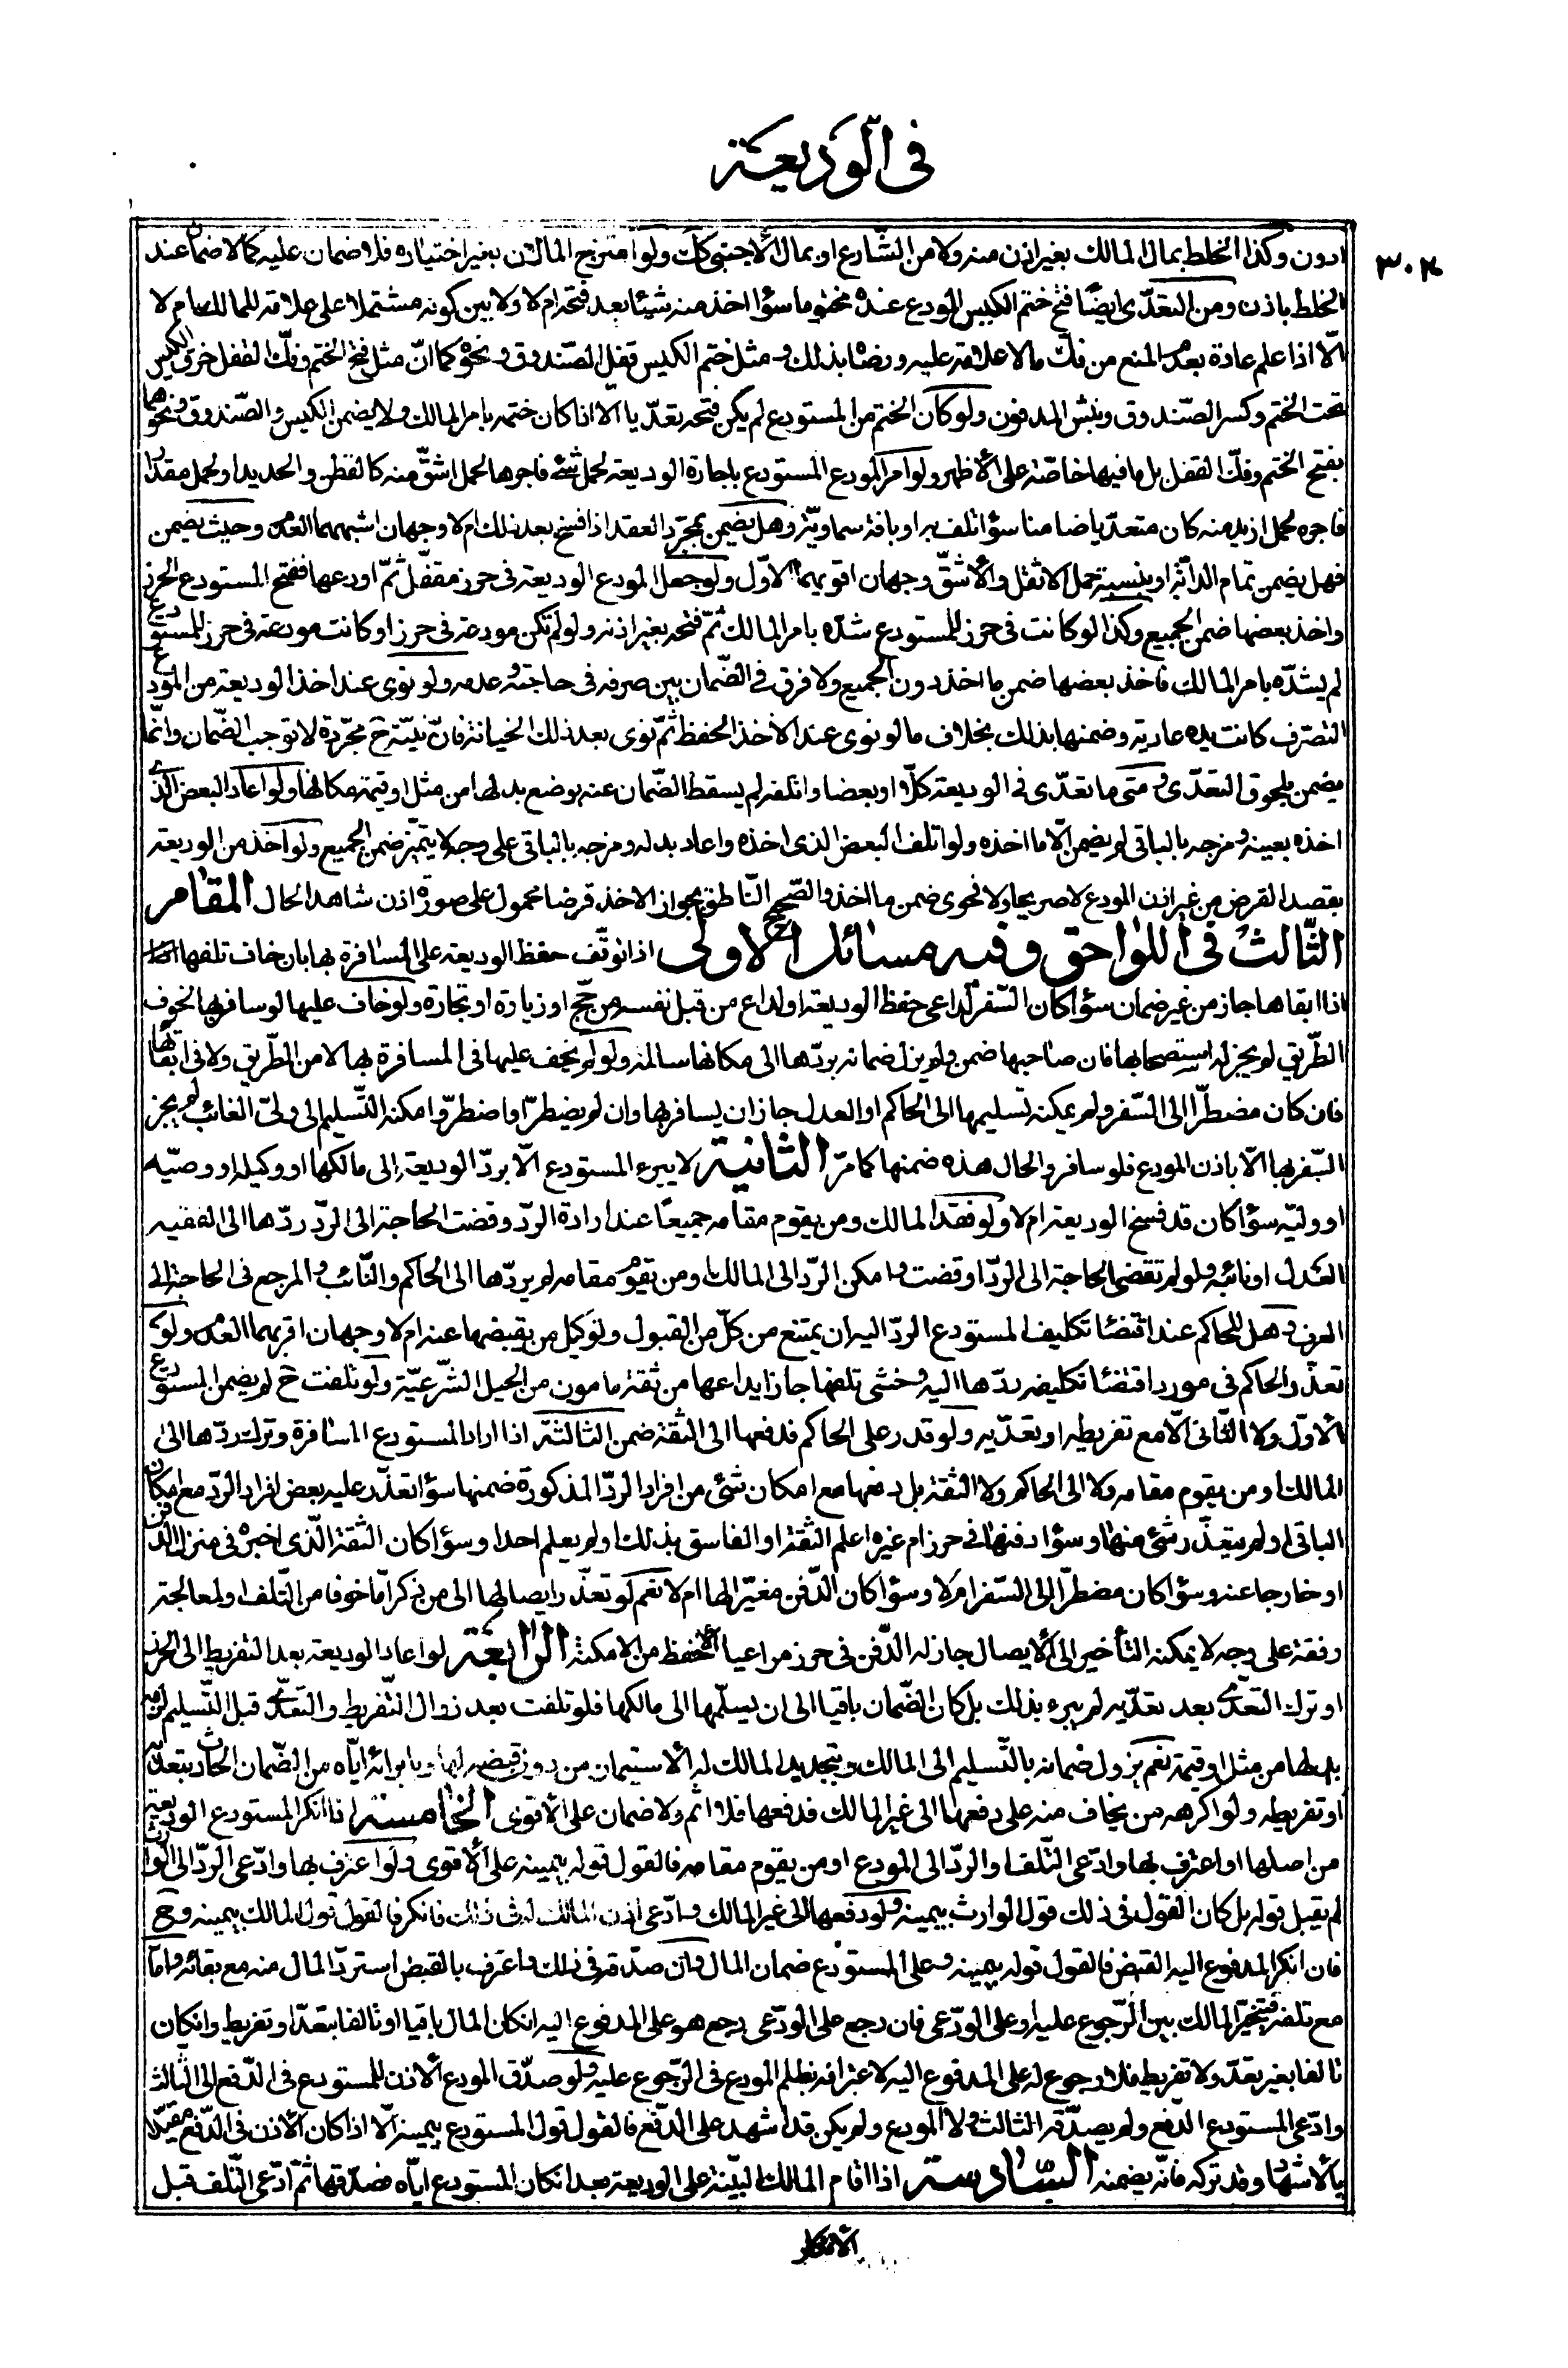 في الوديعة
٣٠٤
ادون وكذا الخلط بمال المالك بغير اذن منه ولا من الشّارع او بمال الأجنبي كك ولو امتزج المالان بغير اختياره فلا ضمان عليه كما لا ضمان عند
الخلط باذن ومن التعدّى ايضًا فتح ختم الكيس المودع عنده مختوما سواء اخذ منه شيئا بعد فتحه ام لا ولا بين كونه مشتملا على علامة للمالك ام لا
الّا اذا علم عادة بعدم المنع من فكّ ما لا علامة عليه ورضاه بذلك ومثل ختم الكيس قفل الصّندوق ونحوه كما انّ مثل فتح الختم وفكّ القفل خرق الكيس
تحت الختم وكسر الصّندوق ونبش المدفون ولو كان الختم من المستودع لم يكن فتحه تعدّيا الّا اذا كان ختمه بامر المالك ولا يضمن الكيس والصّندوق ونحوهما
بفتح الختم وفكّ القفل بل ما فيها خاصّة على الأظهر ولو امر المودع المستودع باجارة الوديعة لحمل شئ فاجرها لحمل اشقّ منه كالقطن والحديد او لحمل مقدار
فاجره لحمل ازيد منه كان متعدّيا ضامنا سواء تلف به او بافة سماويّة وهل يضمن بمجرّد العقد اذا فسخ بعد ذلك ام لا وجهان اشبههما العدم وحيث يضمن
فهل يضمن تمام الدابّة او بنسبة حمل الاثقل والأشقّ وجهان اقويهما الاوّل ولو جعل المودع الوديعة في حرز مقفّل ثمّ اودعها ففتح المستودع الحرز
واخذ بعضها ضمن الجميع وكذا لو كانت في حرز للمستودع شدّه بامر المالك ثمّ فتحه بغير اذنه ولو لم تكن مودعة في حرز او كانت مودعة في حرز للمستودع
لم يشدّه بامر المالك فاخذ بعضها ضمن ما اخذ دون الجميع ولا فرق في الضّمان بين صرفه في حاجته وعدمه ولو نوى عند اخذ الوديعة من المودع
التصرّف كانت يده عادية وضمنها بذلك بخلاف ما لو نوى عند الأخذ الحفظ ثمّ نوى بعد ذلك الخيانة فانّ نيّته ح مجرّدة لا توجب الضّمان وانّما
يضمن بلحوق التعدّى ومتى ما تعدّى في الوديعة كلّا او بعضا واتلفه لم يسقط الضّمان عنه بوضع بدلها من مثل او قيمة مكانها ولو اعاد البعض الّذى
اخذه بعينه ومزجه بالباقى لم يضمن الّا ما اخذه ولو اتلف البعض الذى اخذه واعاد بدله ومزجه بالباقى على وجه لا يتميّز ضمن الجميع ولو اخذ من الوديعة
بقصد القرض من غير اذن المودع لا صريحا ولا فحوى ضمن ما اخذ والصّحيح النّاطق بجواز الاخذ قرضا محمول على صورة اذن شاهد الحال المقام
الثّالث في اللواحق وفيه مسائل الأولى اذا توقّف حفظ الوديعة على المسافرة بها بان خاف تلفها
اذا ابقاها جاز من غير ضمان سواء كان السّفر لداعى حفظ الوديعة او لداع من قبل نفسه من حجّ او زيارة او تجارة ولو خاف عليها لو سافر بها لخوف
الطّريق لم يجز له استصحابها فان صاحبها ضمن ولم يزل ضمانه بردّها الى مكانها سالمة ولو لم يخف عليها في المسافرة بها لا من الطّريق ولا في ابقائها
فان كان مضطرّا الى السّفر ولم يمكنه تسليمها الى الحاكم او العدل جاز ان يسافر بها وان لم يضطرّ او اضطرّ وامكنه التّسليم الى ولىّ الغائب لم يجز
السّفر بها الّا باذن المودع فلو سافر والحال هذه ضمنها كما مرّ الثّانية لا يبرء المستودع الّا بردّ الوديعة الى مالكها او وكيله او وصيّه
او وليّه سواء كان قد فسخ الوديعة ام لا ولو فقد المالك ومن يقوم مقامه جميعًا عند ارادة الردّ وقضت الحاجة الى الردّ ردّها الى الفقيه
العدل او نائبه ولو لم تقض الحاجة الى الردّ او قضت وامكن الردّ الى المالك ومن يقوم مقامه لم يردّها الى الحاكم والنّائب والمرجع في الحاجة الى
العرف وهل للحاكم عند اقتضاء تكليف المستودع الردّ اليه ان يمتنع من كلّ من القبول وتوكيل من يقبضها عنه ام لا وجهان اقربهما العدم ولو
تعذّر الحاكم في مورد اقتضاء تكليفه ردّها اليه وخشى تلفها جاز ايداعها من ثقة مامون من الحيل الشّرعيّة ولو تلفت ح لم يضمن المستودع
الأوّل ولا الثّانى الّا مع تفريطه او تعدّيه ولو قدر على الحاكم فدفعها الى الثقة ضمن الثّالثة اذا اراد المستودع المسافرة وترك ردّها الى
المالك او من يقوم مقامه ولا الى الحاكم ولا الثقة بل دفنها مع امكان شئ من افراد الردّ المذكورة ضمنها سواء تعذّر عليه بعض افراد الردّ مع امكان
الباقى او لم يتعذّر شئ منها وسواء دفنها في حرز ام غيره اعلم الثقة او الفاسق بذلك او لم يعلم احدا وسواء كان الثقة الّذى اخبره في منزل الدّفن
او خارجا عنه وسواء كان مضطرّا الى السّفر ام لا وسواء كان الدّفن مغيّرا لها ام لا نعم لو تعذّر ايصالها الى من ذكر امّا خوفا من التّلف او لمعالجة
رفقة على وجه لا يمكنه التأخير الى الايصال جاز له الدّفن في حرز مراعيا الأحفظ من الامكنة الرّابعة لو اعاد الوديعة بعد التفريط الى الحرز
او ترك التعدّى بعد تعدّيه لم يبرء بذلك بل كان الضّمان باقيا الى ان يسلّمها الى مالكها فلو تلفت بعد زوال التّفريط والتّعدّى قبل التّسليم لزمه
بدلها من مثل او قيمة نعم يزول ضمانه بالتّسليم الى المالك وبتجديد المالك له الأستيمان من دون قبضه لها وبابرائه ايّاه من الضّمان الحادث بتعدّيه
او تفريطه ولو اكرهه من يخاف منه على دفعها الى غير المالك فدفعها فلا اثم ولا ضمان على الأقوى الخامسة اذا انكر المستودع الوديعة
من اصلها او اعترف بها وادّعى التّلف او الردّ الى المودع او من يقوم مقامه فالقول قوله بيمينه على الأقوى ولو اعترف بها وادّعى الردّ الى الوارث
لم يقبل قوله بل كان القول في ذلك قول الوارث بيمينه ولو دفعها الى غير المالك وادّعى اذن المالك له في ذلك فانكر فالقول قول المالك بيمينه وح
فان انكر المدفوع اليه القبض فالقول قوله بيمينه وعلى المستودع ضمان المال وان صدّقه في ذلك واعترف بالقبض استردّ المال منه مع بقائه وامّا
مع تلفه فيتخيّر المالك بين الرّجوع عليه او على الودّعى فان رجع على الودّعى رجع هو على المدفوع اليه ان كان المال باقيا او تالفا بتعدّ او تفريط وان كان
تالفا بغير تعدّ ولا تفريط فلا رجوع له على المدفوع اليه لاعترافه بظلم المودع في الرّجوع عليه ولو صدّق المودع الأذن للمستودع في الدّفع الى الثّالث
وادّعى المستودع الدّفع ولم يصدّقه الثالث ولا المودع ولم يكن قد اشهد على الدّفع فالقول قول المستودع بيمينه الّا اذا كان الأذن في الدّفع مقيّدا
بالاشهاد وقد تركه فانّه يضمنه السّادسة اذا اقام المالك البيّنة على الوديعة بعد انكار المستودع ايّاه فصدّقها ثمّ ادّعى التّلف قبل
الأنكار